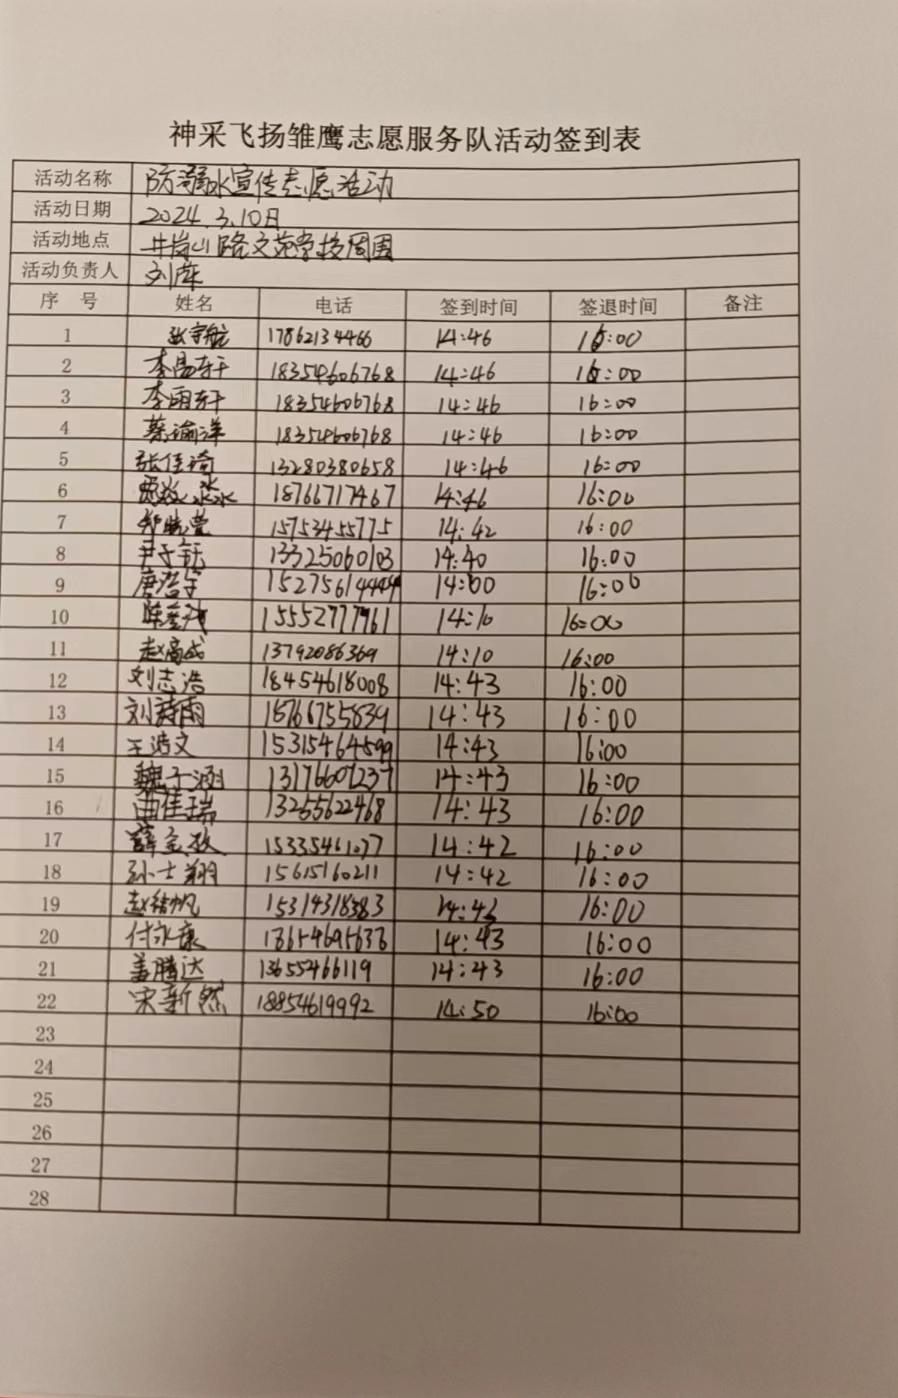 神采飞扬雏鹰志愿服务队活动签到表
活动名称 防溺水宣传志愿活动
活动日期 2024.3.10日
活动地点 井岗山路文苑学校周围
活动负责人 刘库
序 号 姓名 电话 签到时间 签退时间 备注
1 张宇航 17862134466 14:46 16:00
2 李昌轩 18354606768 14:46 16:00
3 李雨轩 18354606768 14:46 16:00
4 蔡瑜洋 18354606768 14:46 16:00
5 张佳琦 13280380658 14:46 16:00
6 淼淼 18766717467 14:46 16:00
7 郑晓萱 15753455775 14:42 16:00
8 尹子钰 13325060103 14:40 16:00
9 唐浩宇 15275614444 14:00 16:00
10 15552777961 14:10 16:00
11 赵高成 13792086369 14:10 16:00
12 刘志浩 18454618008 14:43 16:00
13 刘诗雨 16766755839 14:43 16:00
14 王浩文 15315464599 14:43 16:00
15 魏子涵 13176607237 14:43 16:00
16 曲佳瑞 13255622468 14:43 16:00
17 薛 15335461077 14:42 16:00
18 孙士翔 15615160211 14:42 16:00
19 赵帆 15314318383 14:43 16:00
20 付永康 18654695638 14:43 16:00
21 盖腾达 13655466119 14:43 16:00
22 宋新然 18854619992 14:50 16:00
23
24
25
26
27
28